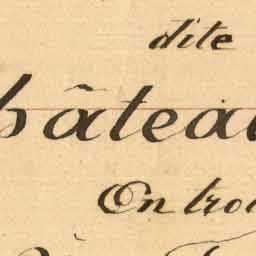 dite
hâteau
On trou